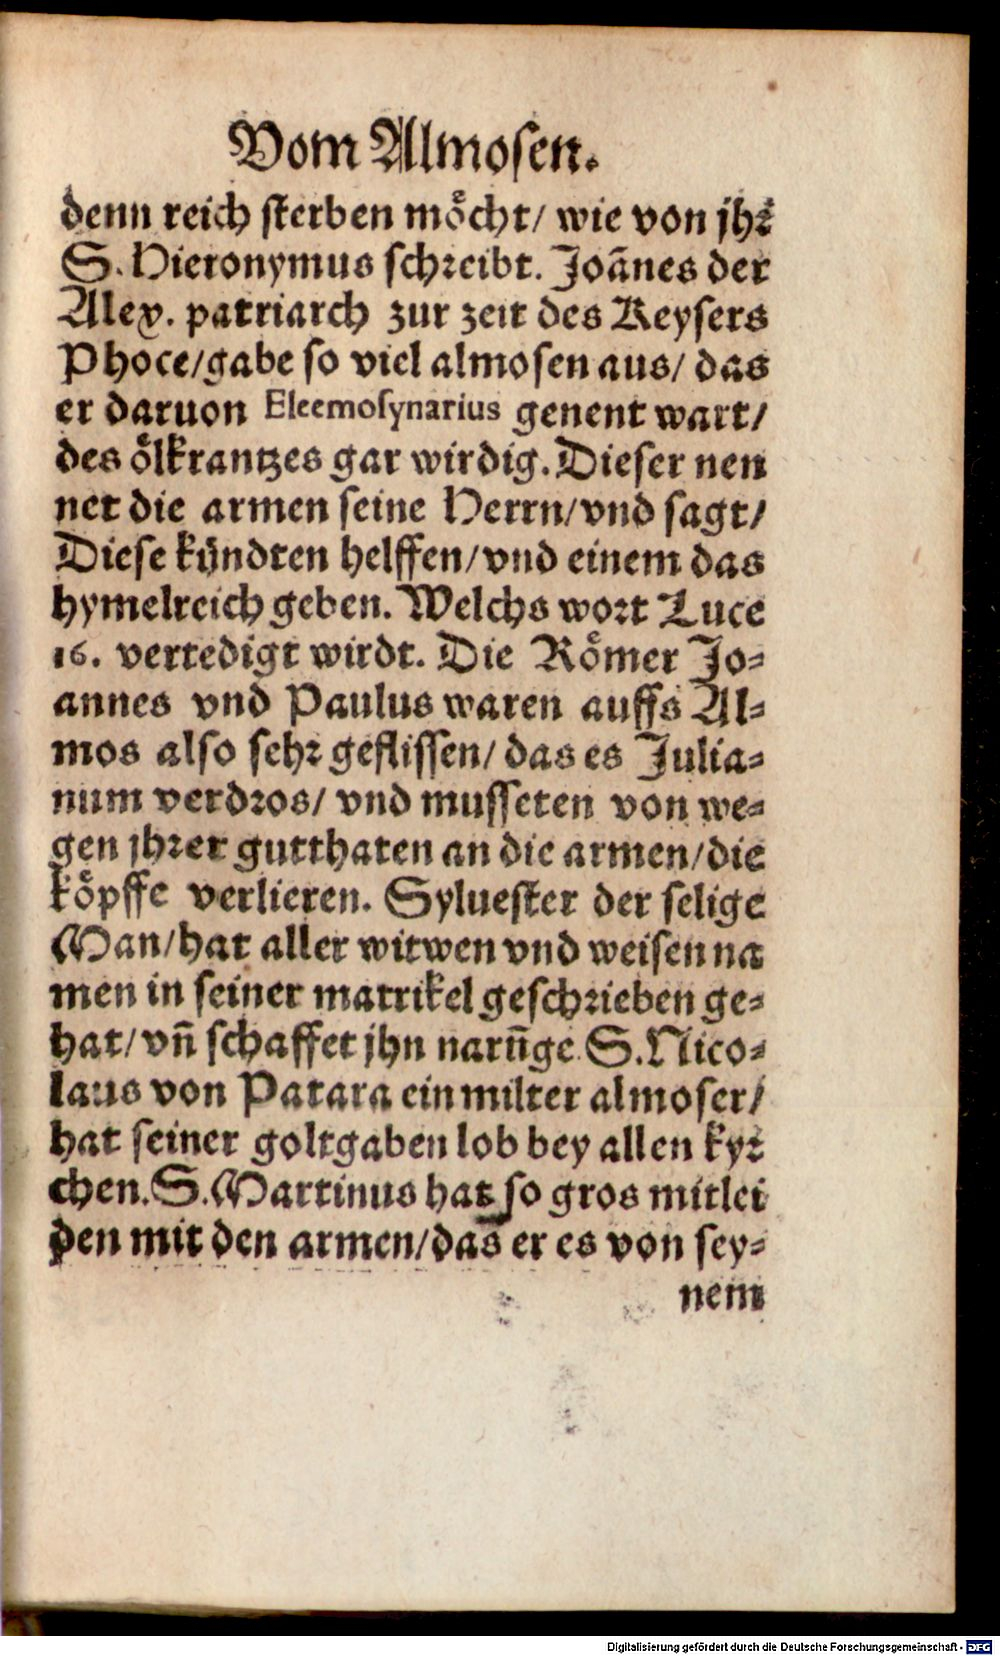 Vom Almosen.
denn reich sterben möcht/ wie von jhr
S. Hieronymus schreibt. Joañes der
Alex. patriarch zur zeit des Keysers
Phoce/gabe so viel almosen aus/ das
er daruon Eleemosynarius genent wart/
des ölkrantzes gar wirdig. Dieser nen
net die armen seine Herrn/vnd sagt/
Diese kündten helffen/vnd einem das
hymelreich geben. Welchs wort Luce
16. vertedigt wirdt. Die Römer Jo-
annes vnd Paulus waren auffs Al-
mos also sehr geflissen/ das es Julia-
num verdros/ vnd musseten von we-
gen jhrer gutthaten an die armen/die
köpffe verlieren. Syluester der selige
Man/hat aller witwen vnd weisen na
men in seiner matrikel geschrieben ge-
hat/ vñ schaffet jhn narũge. S. Nico-
laus von Patara ein milter almoser/
hat seiner goltgaben lob bey allen kyr
chen. S. Martinus hat so gros mitlei
den mit den armen/das er es von sey-
nem
Digitalisierung gefördert durch die Deutsche Forschungsgemeinschaft - DFG